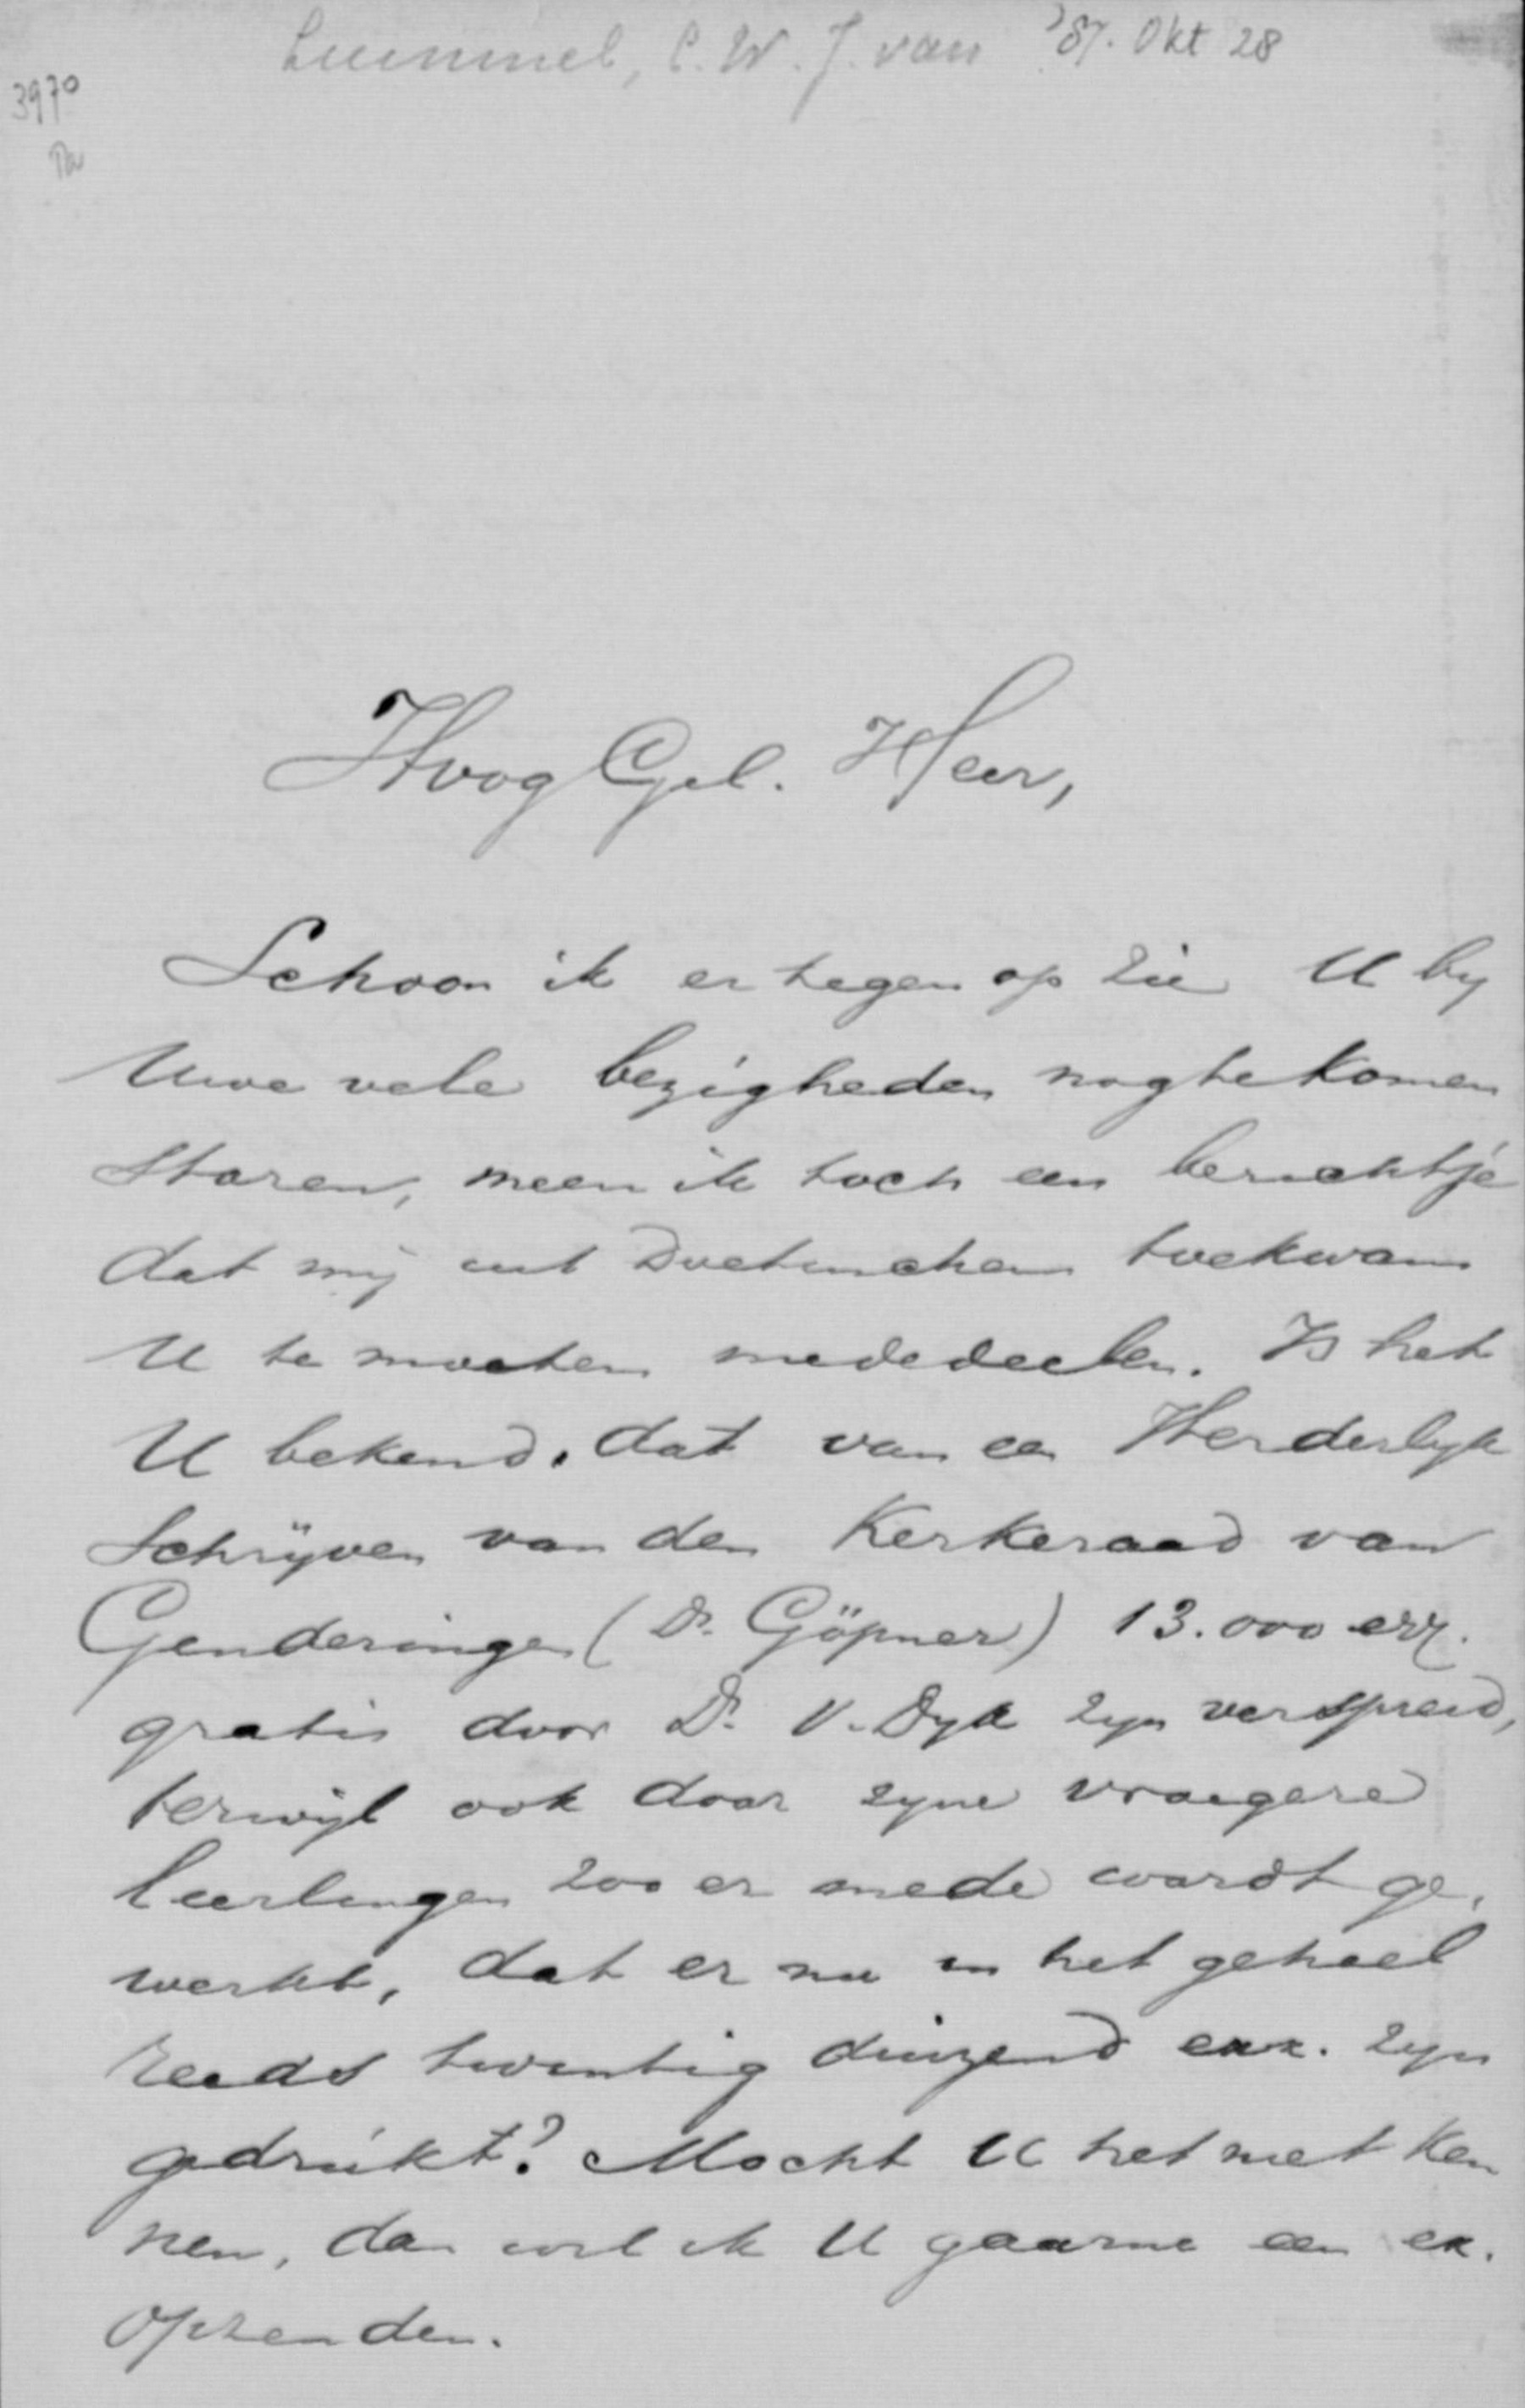 Lummel, C. W. J. van '87. Okt 28
3970
Hoog Gel. Heer,
Schoon ik er tegen op zie U by
Uwe vele bezigheden nog te komen
storen, meen ik toch een berichtje
dat mij uit Doetinchem toekwam
U te moeten mededeelen. Is het
U bekend, dat van een Herderlyk
Schrijven van den Kerkeraad van
Genderingen (Ds. Göpner) 13.000 exx.
gratis door Ds. V. Dyk zyn verspreid,
terwijl ook door zyne vroegere
leerlingen zoo er mede wordt ge-
werkt, dat er nu in het geheel
reeds twintig duizend exx. zyn
gedrukt? Mocht U het niet ken
nen, dan wil ik U gaarne een ex.
opzenden.